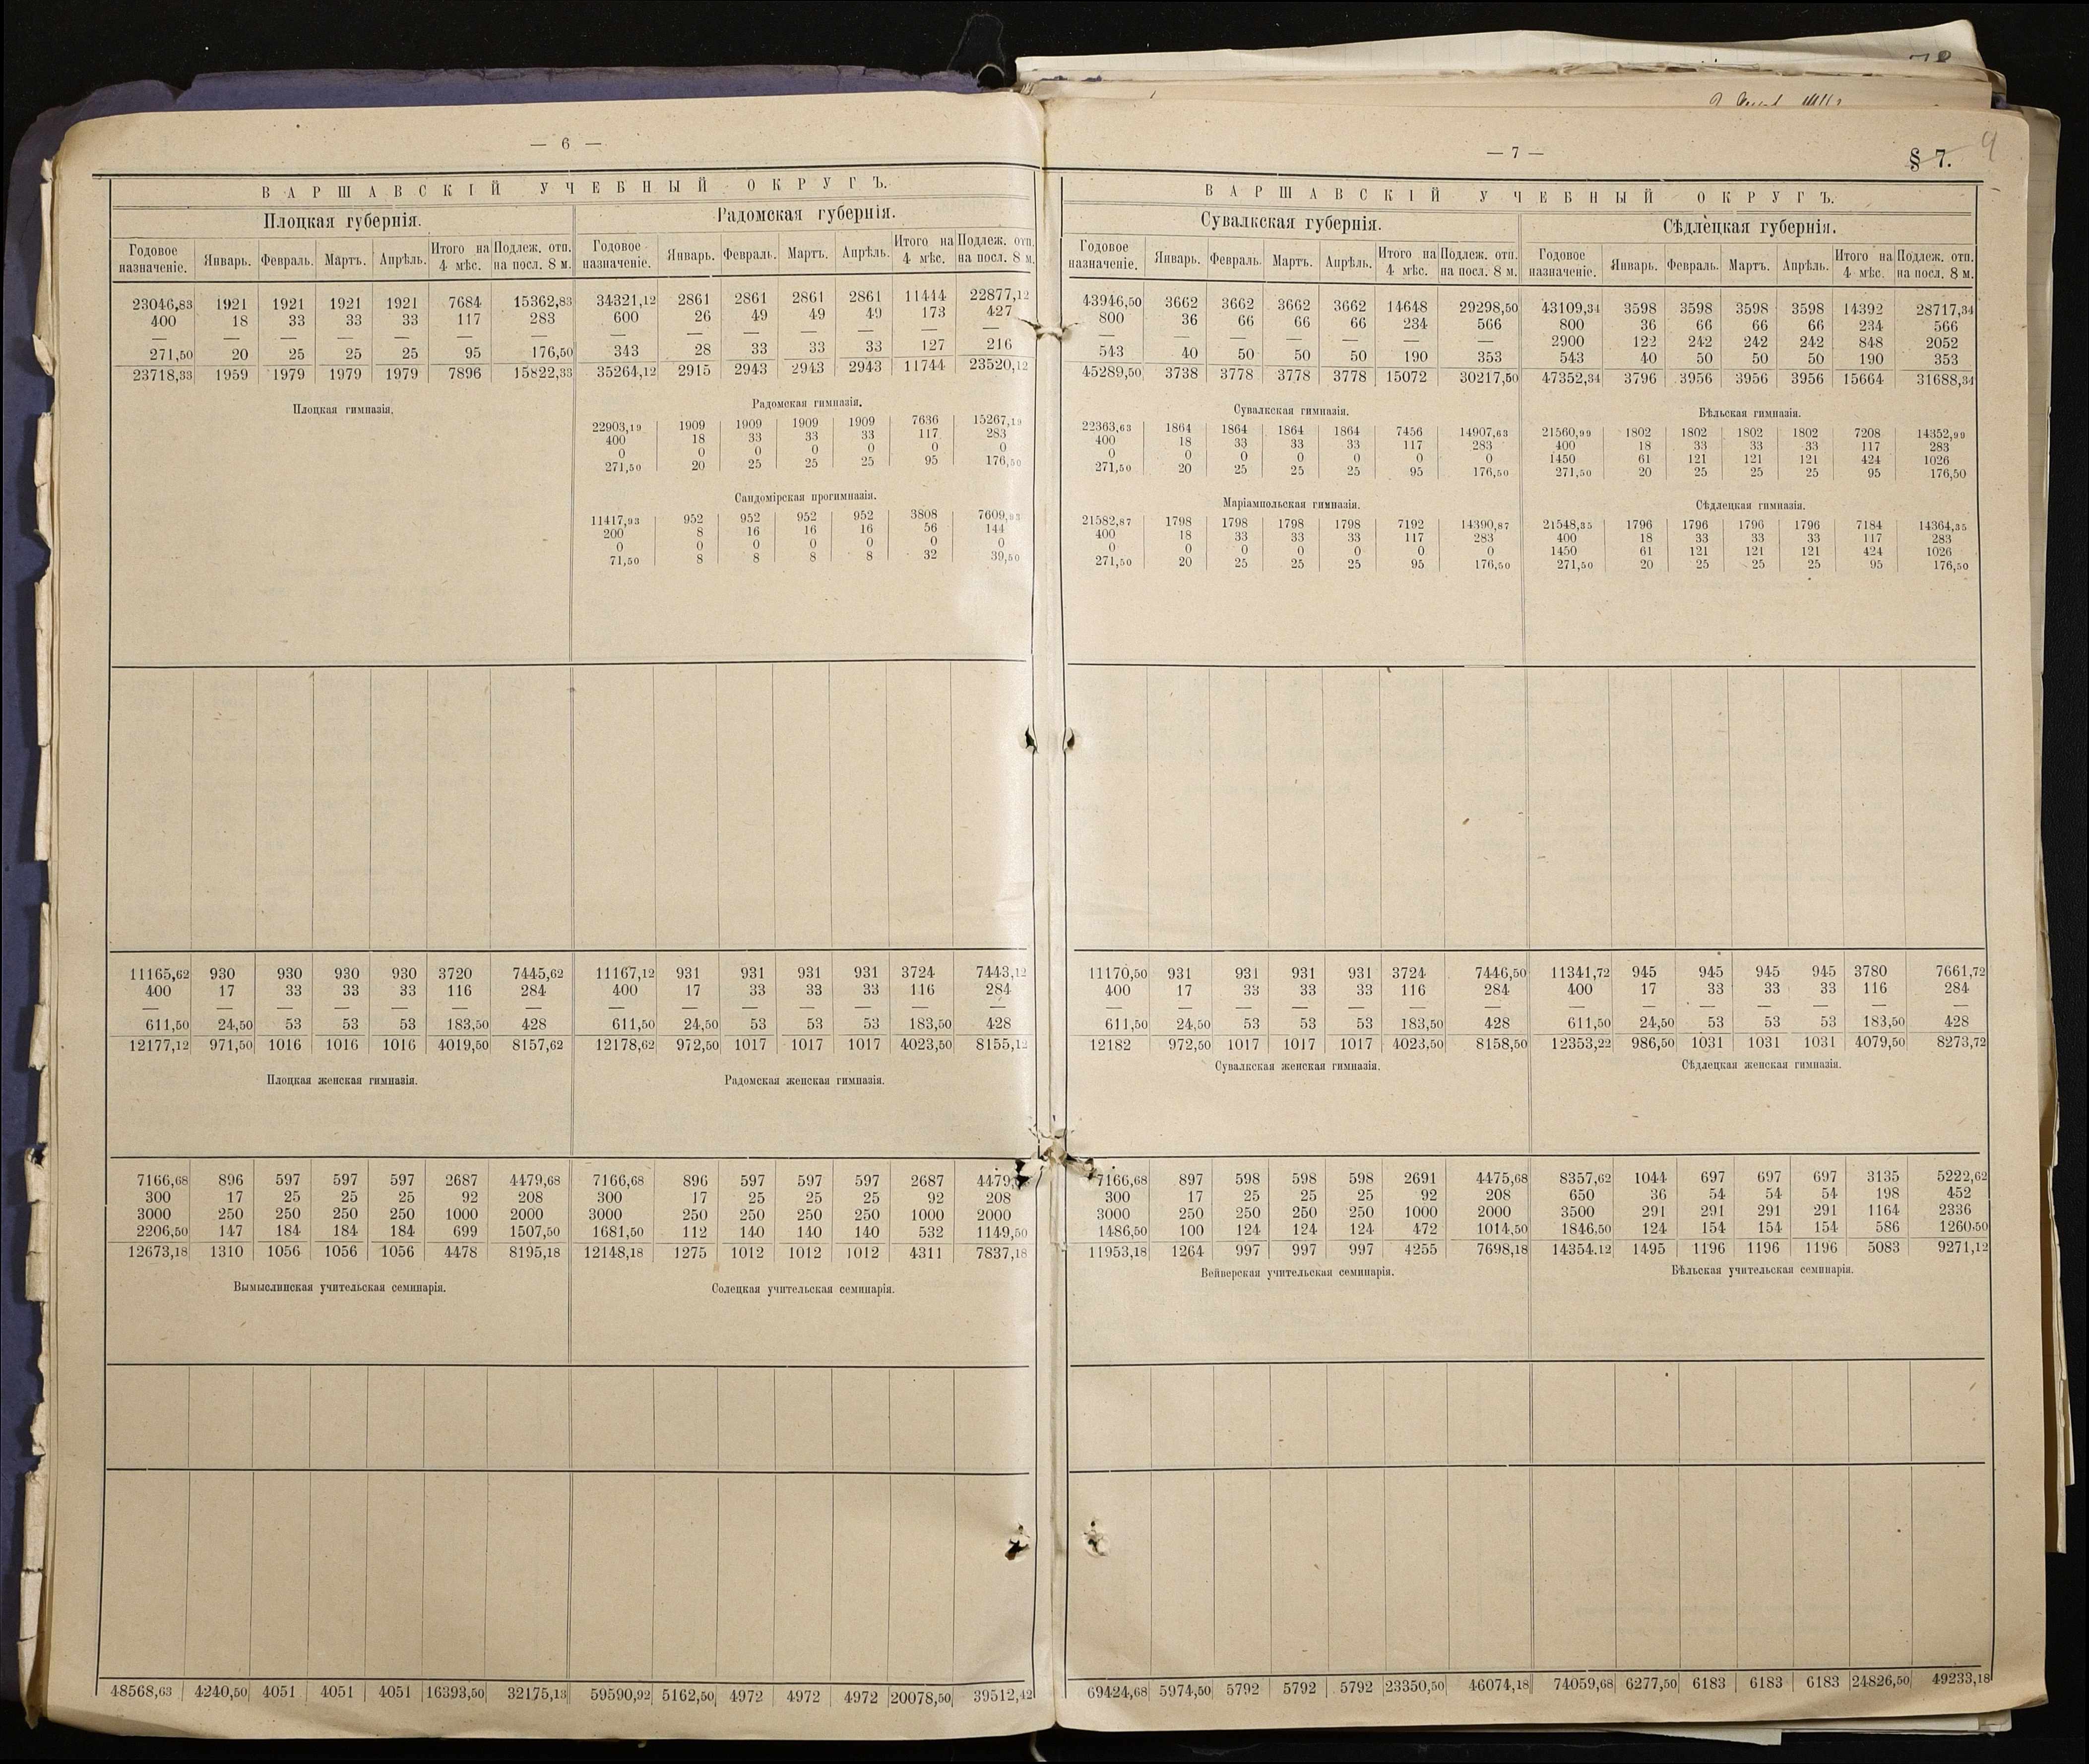 — 6 —
ВАРШАВСКІЙ УЧЕБНЫЙ ОКРУГЪ.
Плоцкая губернія. Радомская губернія.
Годовое назначеніе. Январь. Февраль. Мартъ. Апрѣль. Итого на 4 мѣс. Подлеж. отп. на посл. 8 м. Годовое назначеніе. Январь. Февраль. Мартъ. Апрѣль. Итого на 4 мѣс. Подлеж. отп. на посл. 8 м.
23046,83 1921 1921 1921 1921 7684 15362,83 34321,12 2861 2861 2861 2861 11444 22877,12
400 18 33 33 33 117 283 600 26 49 49 49 173 427
— — — — — — — — — — — — — —
271,50 20 25 25 25 95 176,50 343 28 33 33 33 127 216
23718,33 1959 1979 1979 1979 7896 15822,33 35264,12 2915 2943 2943 2943 11744 23520,12
Плоцкая гимназія. Радомская гимназія.
22903,19 1909 1909 1909 1909 7636 15267,19
400 18 33 33 33 117 283
0 0 0 0 0 0 0
271,50 20 25 25 25 95 176,50
Сандомірская прогимназія.
11417,93 952 952 952 952 3808 7609,93
200 8 16 16 16 56 144
0 0 0 0 0 0 0
71,50 8 8 8 8 32 39,50
11165,62 930 930 930 930 3720 7445,62 11167,12 931 931 931 931 3724 7443,12
400 17 33 33 33 116 284 400 17 33 33 33 116 284
— — — — — — — — — — — — — —
611,50 24,50 53 53 53 183,50 428 611,50 24,50 53 53 53 183,50 428
12177,12 971,50 1016 1016 1016 4019,50 8157,62 12178,62 972,50 1017 1017 1017 4023,50 8155,12
Плоцкая женская гимназія. Радомская женская гимназія.
7166,68 896 597 597 597 2687 4479,68 7166,68 896 597 597 597 2687 4479
300 17 25 25 25 92 208 300 17 25 25 25 92 208
3000 250 250 250 250 1000 2000 3000 250 250 250 250 1000 2000
2206,50 147 184 184 184 699 1507,50 1681,50 112 140 140 140 532 1149,50
12673,18 1310 1056 1056 1056 4478 8195,18 12148,18 1275 1012 1012 1012 4311 7837,18
Вымыслинская учительская семинарія. Солецкая учительская семинарія.
48568,63 4240,50 4051 4051 4051 16393,50 32175,13 59590,92 5162,50 4972 4972 4972 20078,50 39512,42
— 7 —
§ 7. 9
ВАРШАВСКІЙ УЧЕБНЫЙ ОКРУГЪ.
Сувалкская губернія. Сѣдлецкая губернія.
Годовое назначеніе. Январь. Февраль. Мартъ. Апрѣль. Итого на 4 мѣс. Подлеж. отп. на посл. 8 м. Годовое назначеніе. Январь. Февраль. Мартъ. Апрѣль. Итого на 4 мѣс. Подлеж. отп. на посл. 8 м.
43946,50 3662 3662 3662 3662 14648 29298,50 43109,34 3598 3598 3598 3598 14392 28717,34
800 36 66 66 66 234 566 800 36 66 66 66 234 566
— — — — — — — 2900 122 242 242 242 848 2052
543 40 50 50 50 190 353 543 40 50 50 50 190 353
45289,50 3738 3778 3778 3778 15072 30217,50 47352,34 3796 3956 3956 3956 15664 31688,34
Сувалкская гимназія. Бѣльская гимназія.
22363,63 1864 1864 1864 1864 7456 14907,63 21560,99 1802 1802 1802 1802 7208 14352,99
400 18 33 33 33 117 283 400 18 33 33 33 117 283
0 0 0 0 0 0 0 1450 61 121 121 121 424 1026
271,50 20 25 25 25 95 176,50 271,50 20 25 25 25 95 176,50
Маріампольская гимназія. Сѣдлецкая гимназія.
21582,87 1798 1798 1798 1798 7192 14390,87 21548,35 1796 1796 1796 1796 7184 14364,35
400 18 33 33 33 117 283 400 18 33 33 33 117 283
0 0 0 0 0 0 0 1450 61 121 121 121 424 1026
271,50 20 25 25 25 95 176,50 271,50 20 25 25 25 95 176,50
11170,50 931 931 931 931 3724 7446,50 11341,72 945 945 945 945 3780 7661,72
400 17 33 33 33 116 284 400 17 33 33 33 116 284
— — — — — — — — — — — — — —
611,50 24,50 53 53 53 183,50 428 611,50 24,50 53 53 53 183,50 428
12182 972,50 1017 1017 1017 4023,50 8158,50 12353,22 986,50 1031 1031 1031 4079,50 8273,72
Сувалкская женская гимназія. Сѣдлецкая женская гимназія.
7166,68 897 598 598 598 2691 4475,68 8357,62 1044 697 697 697 3135 5222,62
300 17 25 25 25 92 208 650 36 54 54 54 198 452
3000 250 250 250 250 1000 2000 3500 291 291 291 291 1164 2336
1486,50 100 124 124 124 472 1014,50 1846,50 124 154 154 154 586 1260,50
11953,18 1264 997 997 997 4255 7698,18 14354.12 1495 1196 1196 1196 5083 9271,12
Вейверская учительская семинарія. Бѣльская учительская семинарія.
69424,68 5974,50 5792 5792 5792 23350,50 46074,18 74059,68 6277,50 6183 6183 6183 24826,50 49233,18